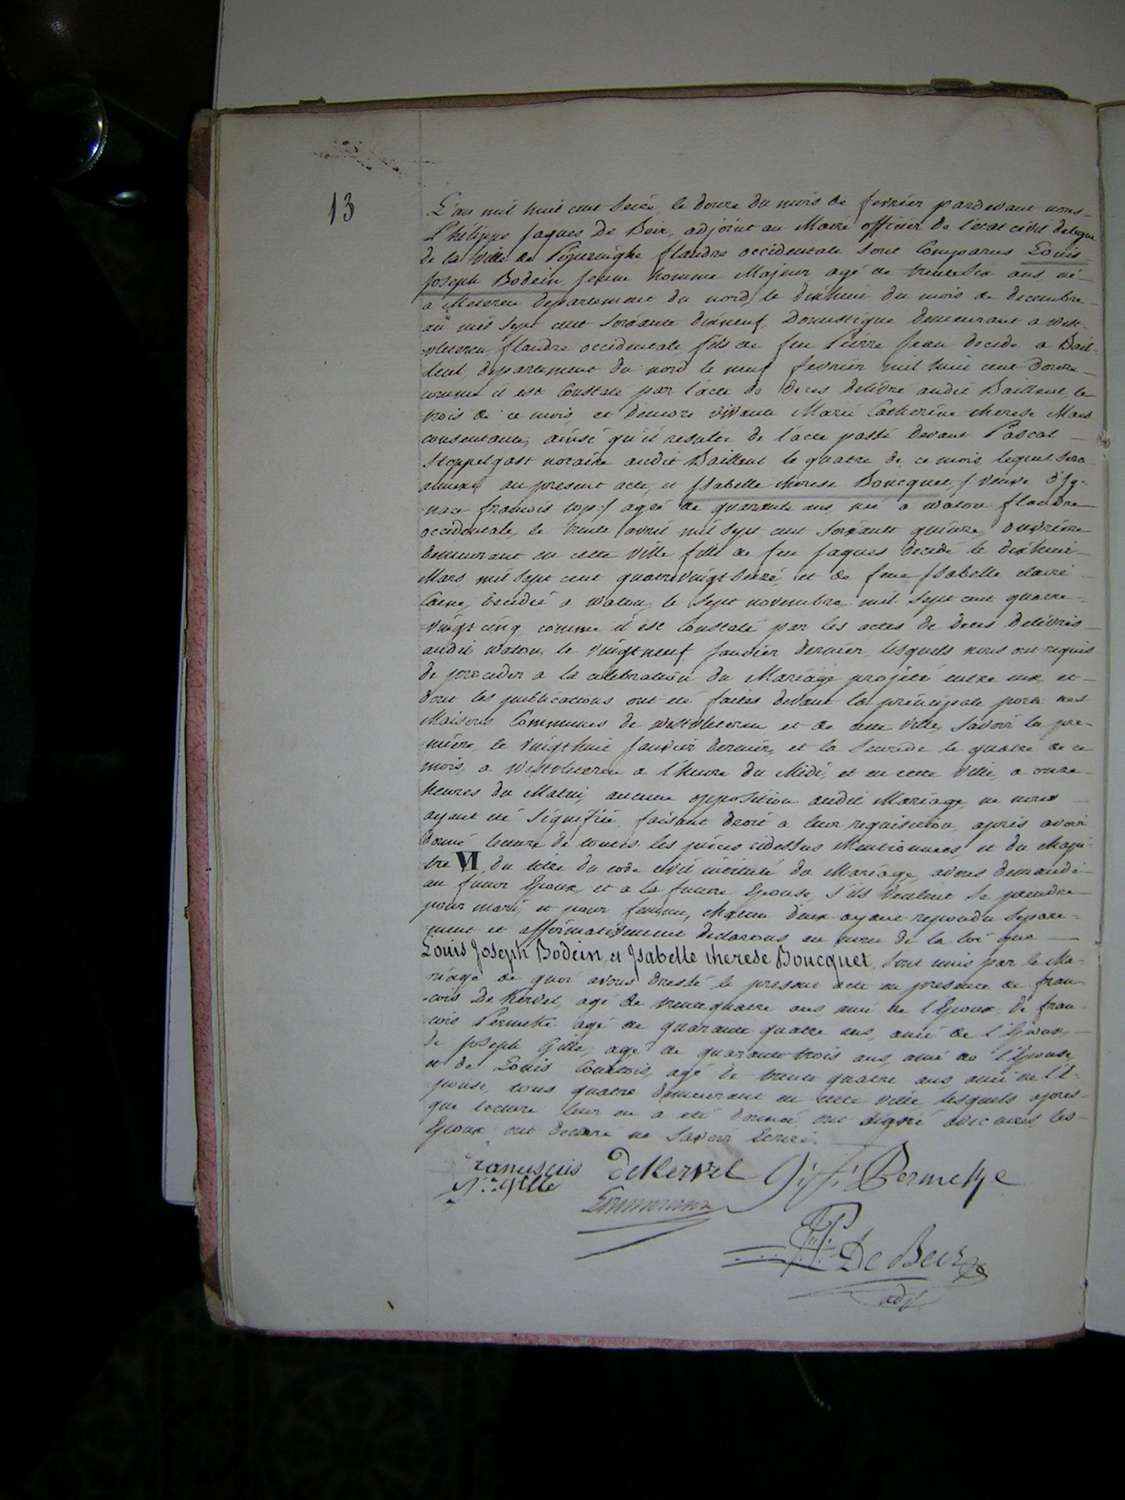 13
L'an mil huit cent seize, le douze du mois de fevrier pardevant nous
Philippe Jaques De Beir, adjoint au Maire officier de l'etat civil delegué
de la Ville de Poperinghe flandre occidentale sont Comparus Louis
Joseph Bodein jeune homme Majeur agé de trentesix ans, né
a Meteren departement du nord, le dixhuit du mois de decembre
an mil sept cent soixante dixneuf, Domestique demeurant a West-
vleteren flandre occidentale fils de feu Pierre Jean decedé a Bail-
leul departement du nord le neuf fevrier mil huit cent douze
comme il est Constaté par l'acte de deces delivré audit Bailleul, le
trois de ce mois, et d'encore vivante Marie Catherine therese Maes
consentante, ainsi qu'il resulte de l'acte passé devant Pascal
Stoppelgast notaire audit Bailleul le quatre de ce mois, lequel sera
annexé au present acte, et Isabelle therese Boucquet, / veuve d'Ig-
nace francois / agée de quarante ans, née a Watou flandre
occidentale, le trente avril mil sept cent soixante quinze, ouvriere
demeurant en cette ville fille de feu Jaques decedé le dixhuit
Mars mil sept cent quatrevingt seize, et de feue Isabelle claire
decedée a Watou, le sept novembre mil sept cent quatre-
vingt cinq, comme il est Constaté par les actes de deces delivrés
audit Watou le vingt neuf Janvier dernier, lesquels nous ont requis
de proceder a la celebration du Mariage projeté entre eux et
dont les publications ont eté faites devant la principale porte des
Maisons Communes de westvleteren et de cette Ville, Savoir la pre-
miere, le vingt huit Janvier dernier, et la seconde le quatre de ce
mois, a Westvleteren a l'heure du Midi, et en cette Ville, a onze
heures du Matin, aucune opposition audit Mariage ne nous
ayant eté signifiée, faisant droit a leur requisition, apres avoir
donné lecture de toutes les pieces cidessus Mentionnées, et du chapi-
tre VI du titre du code civil intitulé du Mariage, avons demandé
au futur Epoux et a la future Epouse, s'ils veulent se prendre
pour mari et pour femme, chacun d'eux ayant repondu separe-
ment et affirmativement declarons au nom de la loi que
Louis Joseph Bodein, et Isabelle therese Boucquet, sont unis par le Ma-
riage de quoi avons dressé le present acte en presence de fran-
cois De Kervel, agé de trentequatre ans ami de l'Epoux, de fran-
cois Permeke agé de quarante quatre ans, ami de l'Epoux,
de Joseph Gille, agé de quarante trois ans, ami de l'Epouse,
et de Louis agé de trente quatre ans ami de l'E-
pouse, tous quatre demeurant en cette ville lesquels apres
que lecture leur en a eté donnée ont signé avec nous, les
Epoux ont declaré ne savoir Ecrire.
franciscus DeKervel J: F: Permeke
J:s: Gille
PJ De Beir
adj.